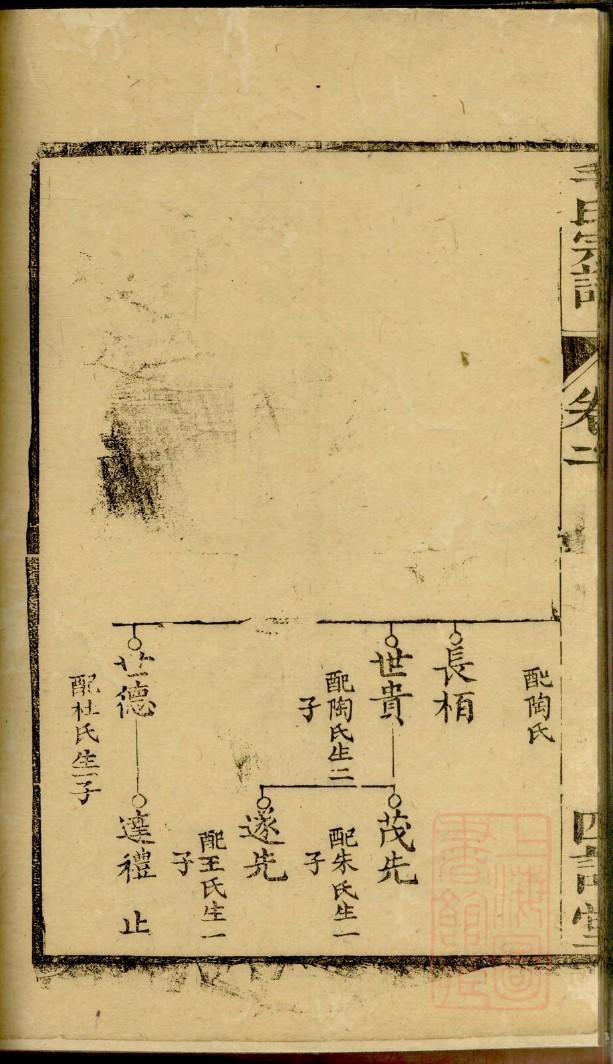 毛氏宗譜
卷二
四詩堂
配陶氏
長栢
世貴
配陶氏生二
子
茂先
配朱氏生一
子
遂先
配王氏生一
子
世德
配杜氏生一子
達禮 止